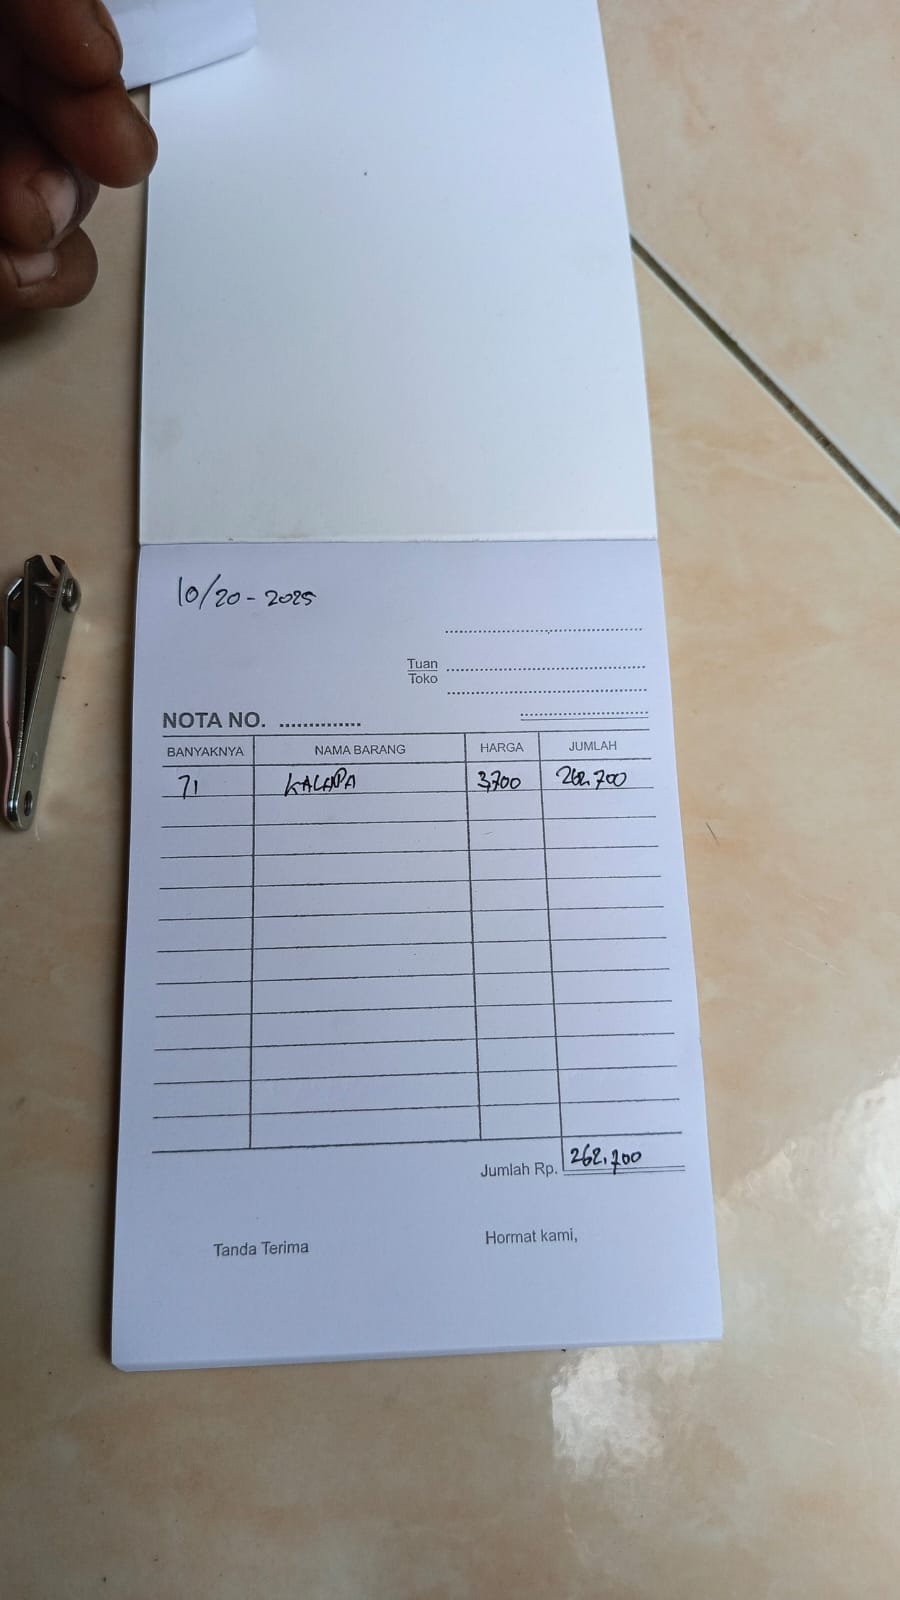 10/20-2025
Tuan
Toko
NOTA NO. ..............
BANYAKNYA NAMA BARANG HARGA JUMLAH
71 KALAPA 3,700 262.700
Jumlah Rp. 262.700
Tanda Terima Hormat kami,